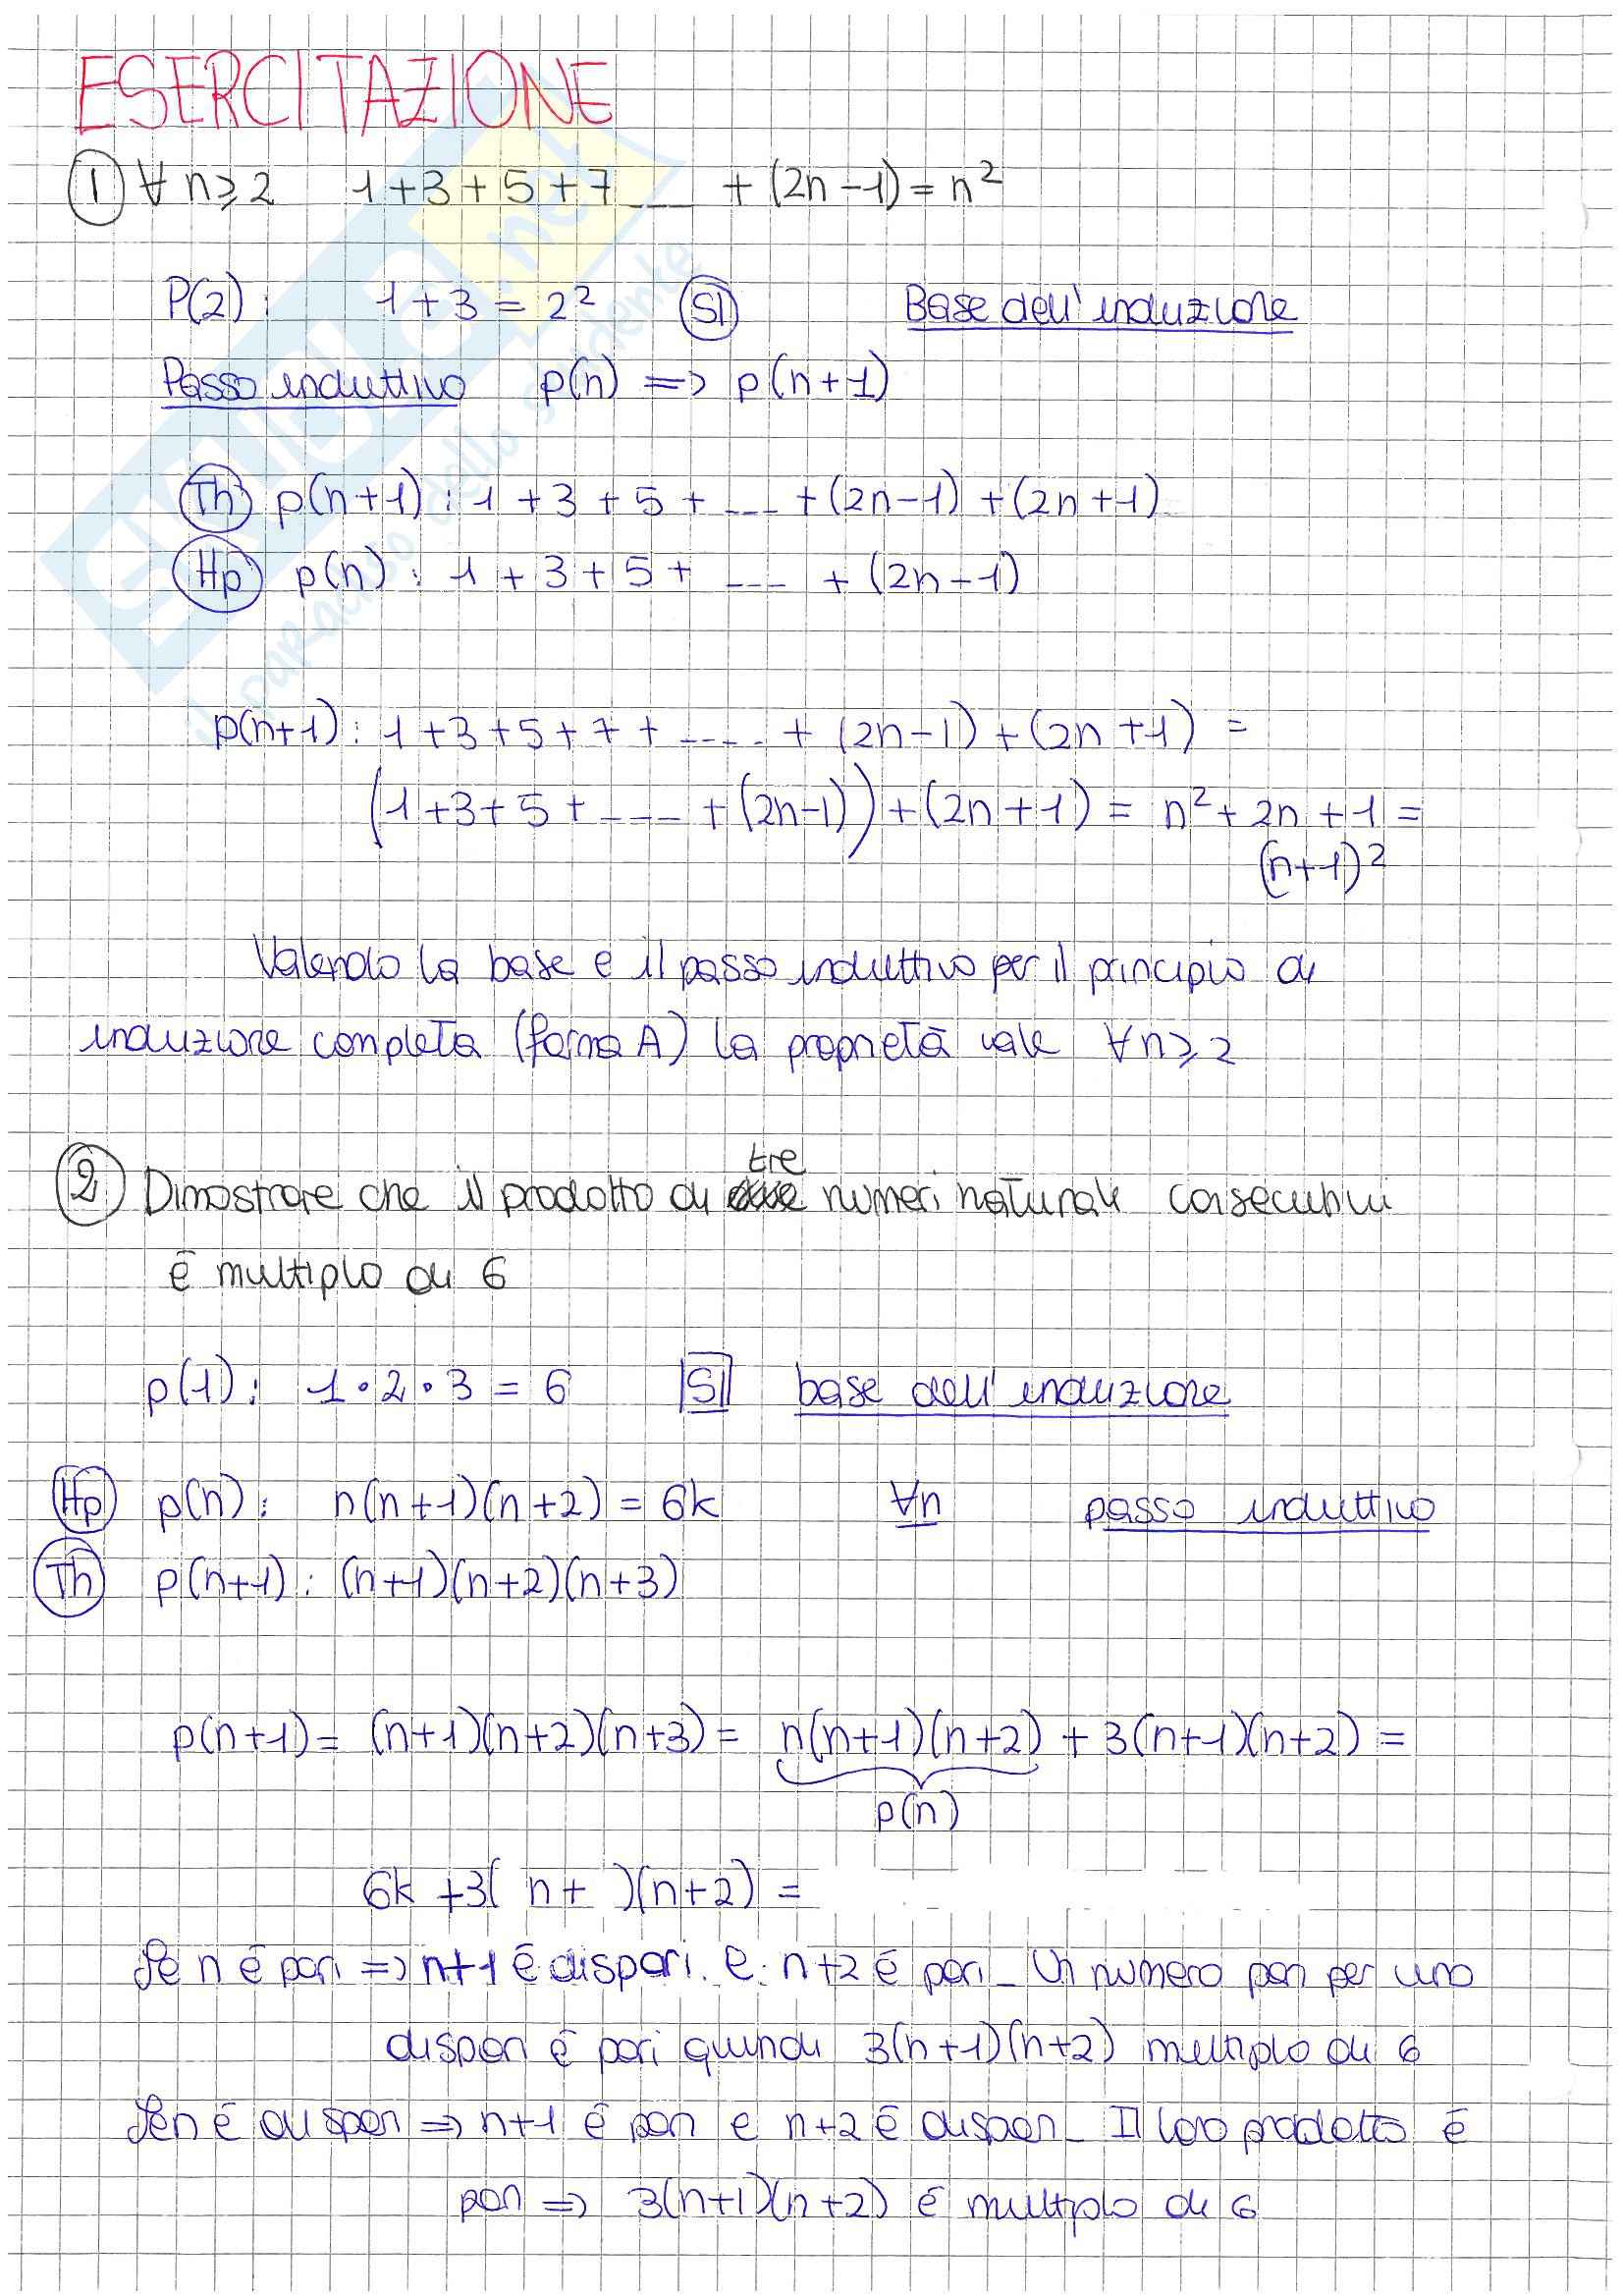 ESERCITAZIONE
① ∀ n ⩾ 2   1+3+5+7 ___ + (2n-1) = n²
P(2) :   1+3 = 2²   SI   Base dell'induzione
Passo induttivo   p(n) => p(n+1)
Th p(n+1) : 1 + 3 + 5 + ---- + (2n-1) + (2n+1)
Hp p(n) : 1 + 3 + 5 + ---- + (2n-1)
p(n+1) : 1+3+5+7+ ----- + (2n-1) + (2n+1) =
(1+3+5+ ---- + (2n-1)) + (2n+1) = n²+2n+1 =
(n+1)²
Valendo la base e il passo induttivo per il principio di
induzione completa (forma A) la proprietà vale ∀n⩾2
tre
② Dimostrare che il prodotto di due numeri naturali consecutivi
è multiplo di 6
p(1) : 1·2·3 = 6   SI   base dell'induzione
Hp p(n) : n(n+1)(n+2) = 6k   ∀n   passo induttivo
Th p(n+1) : (n+1)(n+2)(n+3)
p(n+1) = (n+1)(n+2)(n+3) = n(n+1)(n+2) + 3(n+1)(n+2) =
p(n)
6k +3( n+ )(n+2) =
Se n è pari => n+1 è dispari. e. n+2 è pari_ Un numero pari per uno
dispari è pari quindi 3(n+1)(n+2) multiplo di 6
Se n è dispari => n+1 è pari e n+2 è dispari_ Il loro prodotto è
pari => 3(n+1)(n+2) è multiplo di 6